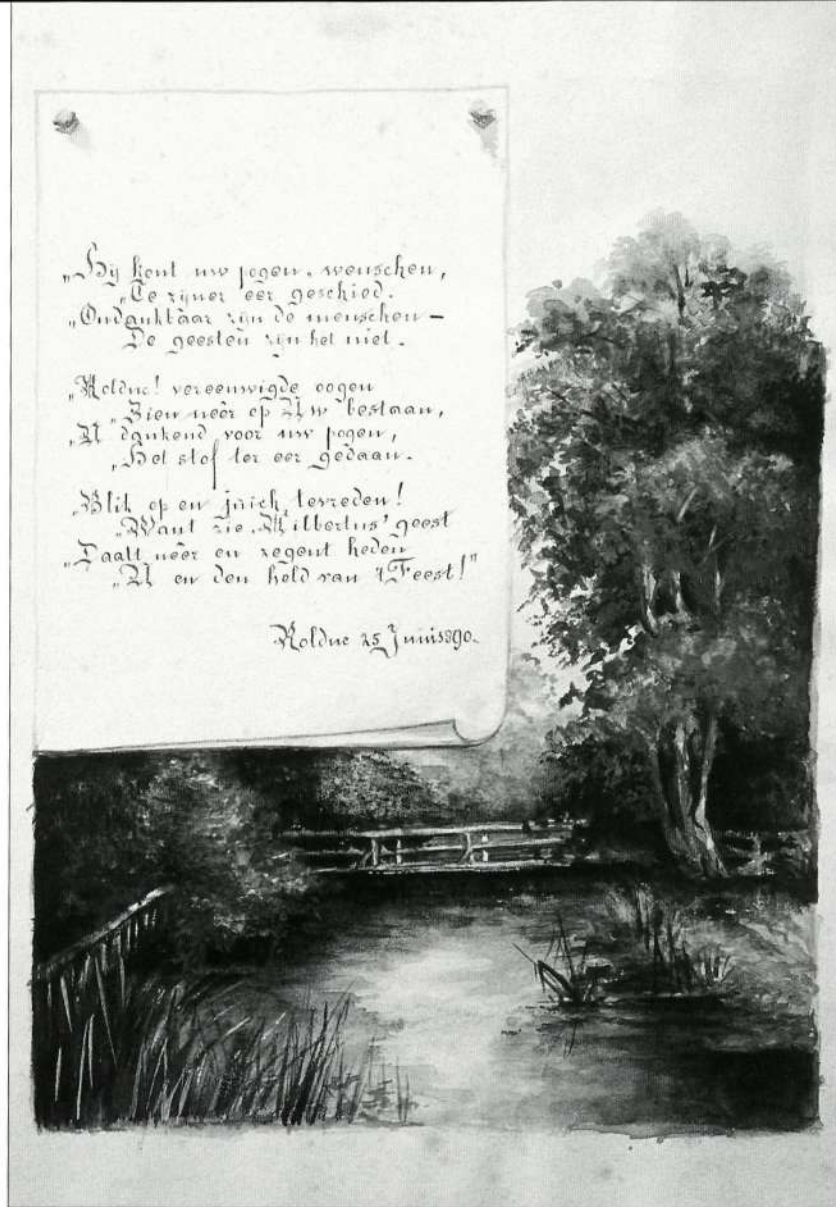 „Hij kent uw pogen, wenschen,
„Te zijner eer geschied.
„Ondankbaar zijn de menschen –
De geesten zijn het niet.
„Rolduc! vereeuwigde oogen
„Zien neêr op Uw bestaan,
„U dankend voor uw pogen,
„Het stof ter eer gedaan.
„Blik op en juich, tevreden!
„Want zie, Wilbertus' geest
„Daalt neêr en zegent heden
„U en den held van 't Feest!"
Rolduc 25 Juni 1890.